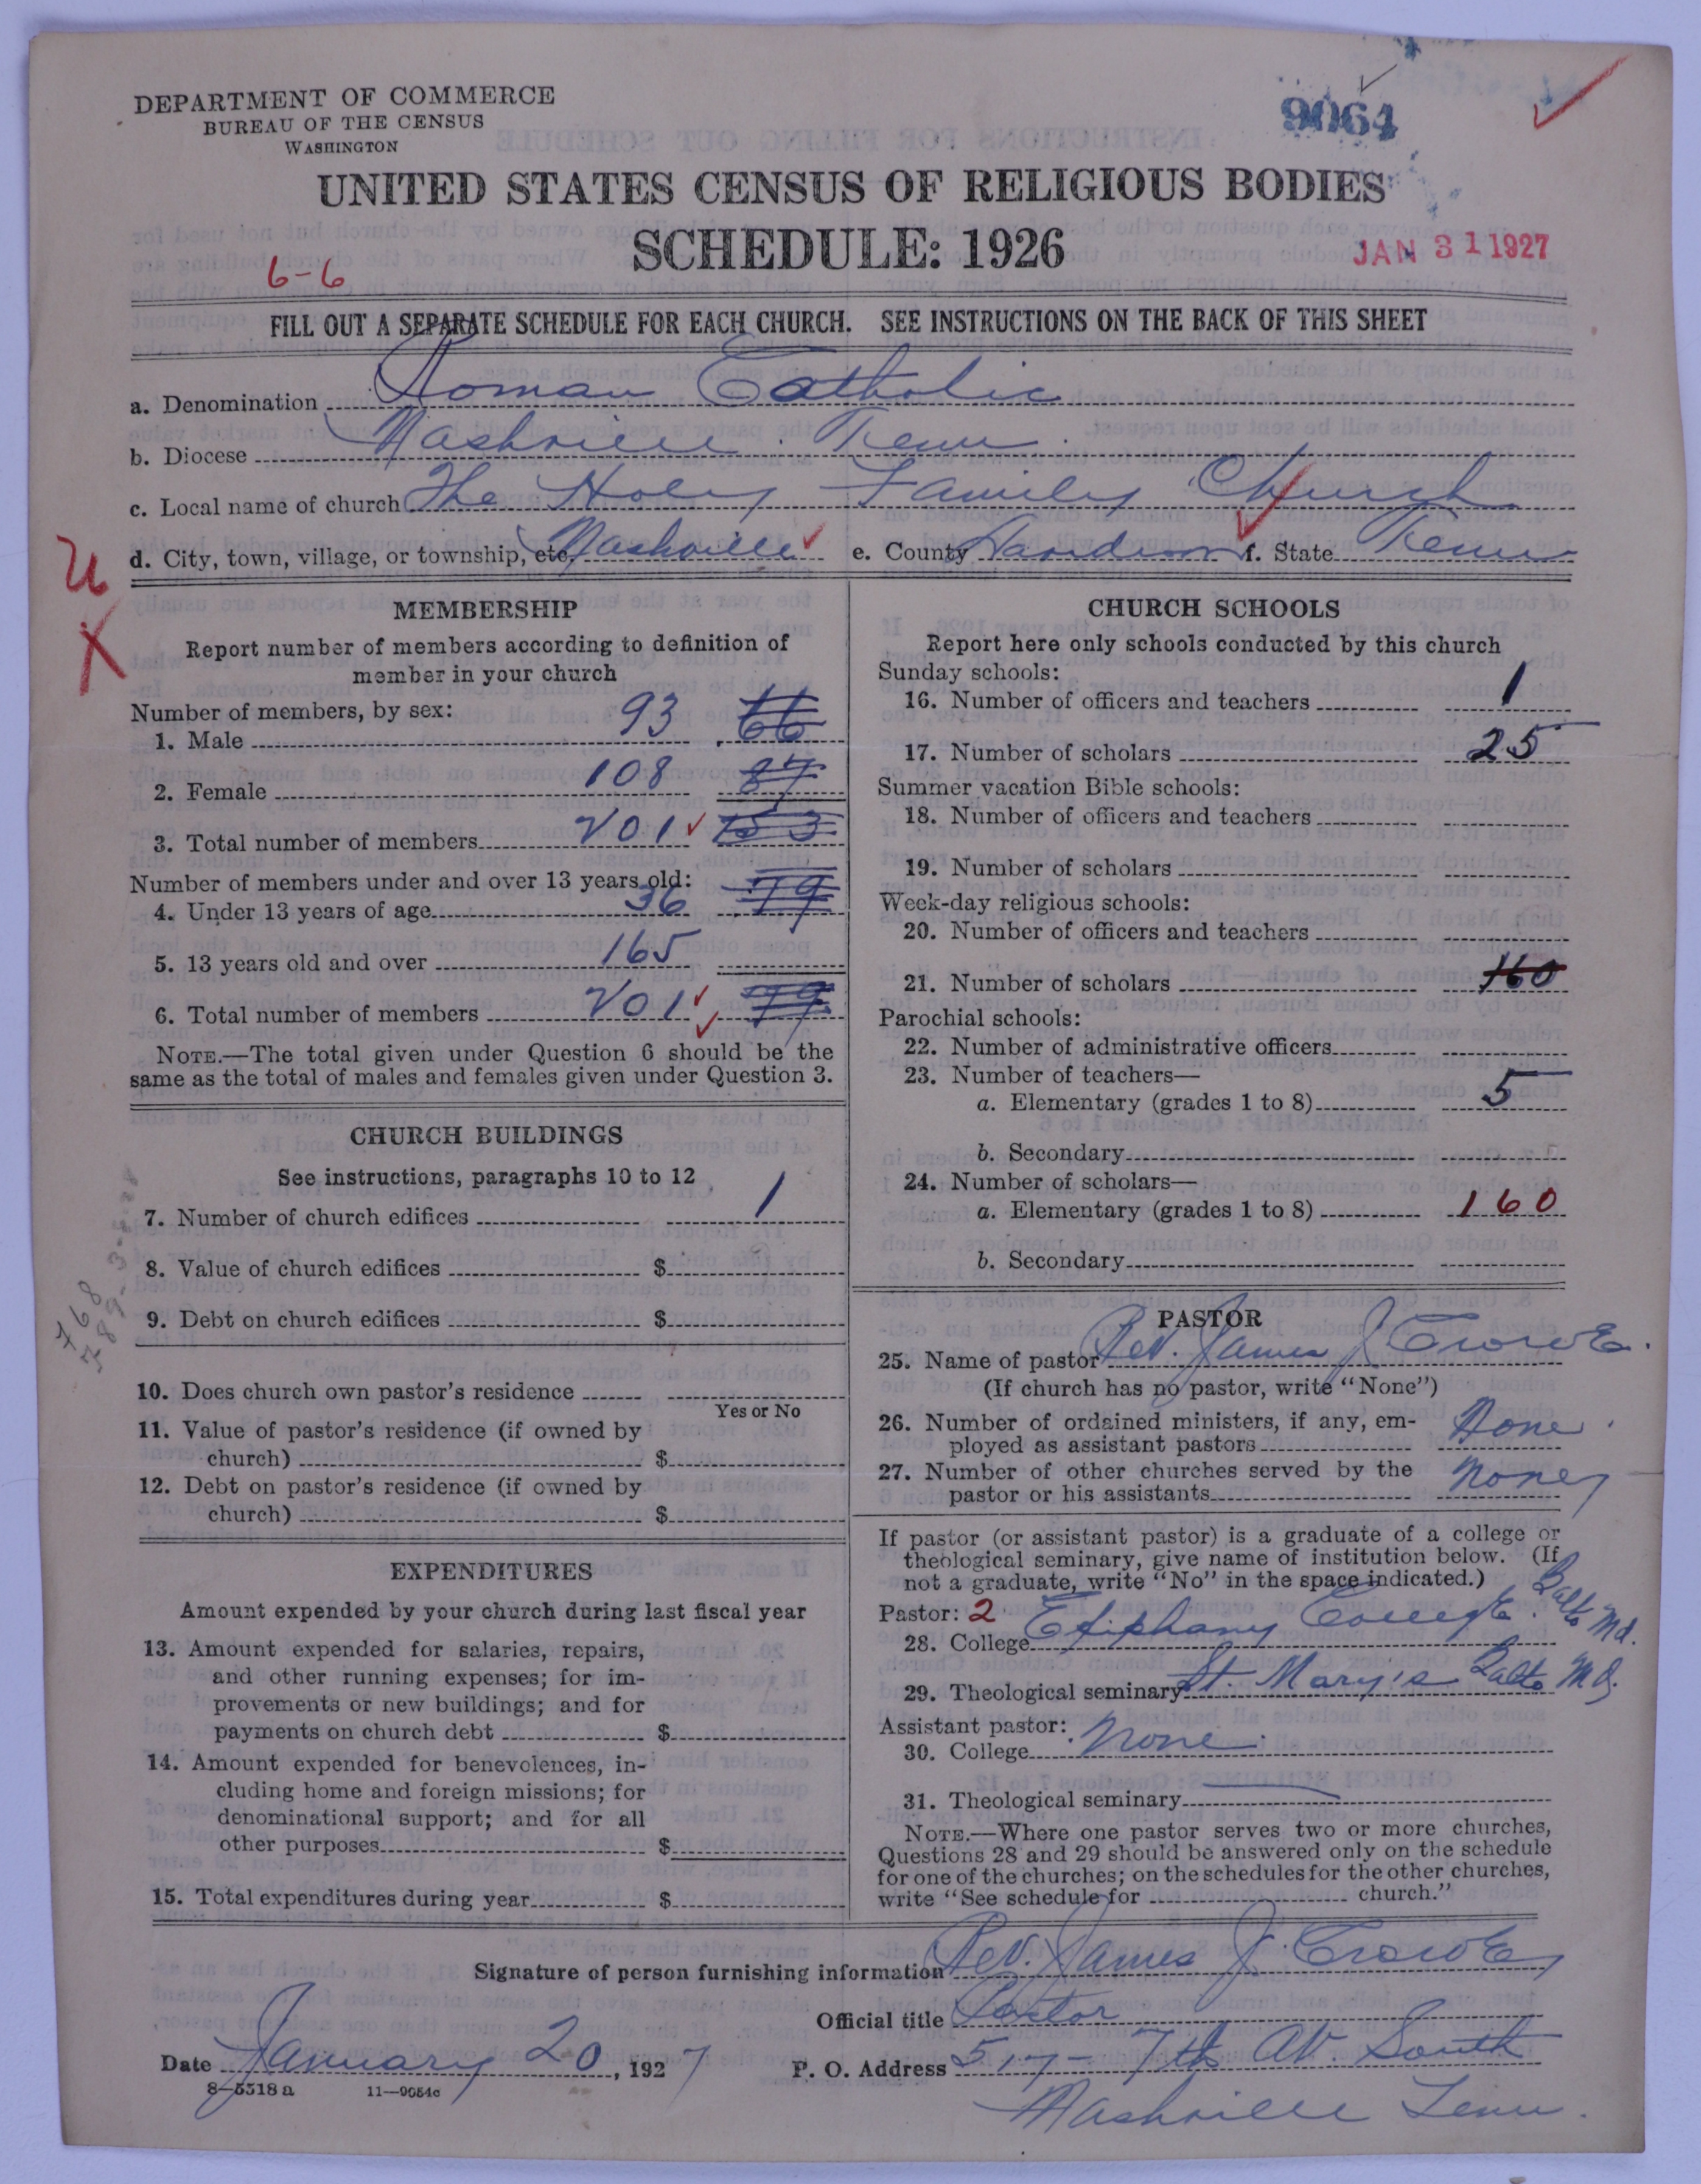 DEPARTMENT OF COMMERCE
BUREAU OF THE CENSUS
WASHINGTON
9064
UNITED STATES CENSUS OF RELIGIOUS BODIES
SCHEDULE: 1926
JAN 31 1927
6-6
FILL OUT A SEPARATE SCHEDULE FOR EACH CHURCH. SEE INSTRUCTIONS ON THE BACK OF THIS SHEET
a. Denomination Roman Catholic
b. Diocese Nashville. Tenn.
c. Local name of church The Holy Family Church
d. City, town, village, or township, etc. Nashville e. County Davidson f. State Tenn
MEMBERSHIP
Report number of members according to definition of
member in your church
Number of members, by sex:
1. Male 93 66
2. Female 108 87
3. Total number of members 201 153
Number of members under and over 13 years old:
4. Under 13 years of age 36 79
5. 13 years old and over 165
6. Total number of members 201 79
NOTE.—The total given under Question 6 should be the
same as the total of males and females given under Question 3.
CHURCH BUILDINGS
See instructions, paragraphs 10 to 12
7. Number of church edifices 1
8. Value of church edifices $
9. Debt on church edifices $
10. Does church own pastor's residence
Yes or No
11. Value of pastor's residence (if owned by
church) $
12. Debt on pastor's residence (if owned by
church) $
EXPENDITURES
Amount expended by your church during last fiscal year
13. Amount expended for salaries, repairs,
and other running expenses; for im-
provements or new buildings; and for
payments on church debt $
14. Amount expended for benevolences, in-
cluding home and foreign missions; for
denominational support; and for all
other purposes $
15. Total expenditures during year $
CHURCH SCHOOLS
Report here only schools conducted by this church
Sunday schools:
16. Number of officers and teachers 1
17. Number of scholars 25
Summer vacation Bible schools:
18. Number of officers and teachers
19. Number of scholars
Week-day religious schools:
20. Number of officers and teachers
21. Number of scholars 160
Parochial schools:
22. Number of administrative officers
23. Number of teachers—
a. Elementary (grades 1 to 8) 5
b. Secondary
24. Number of scholars—
a. Elementary (grades 1 to 8) 160
b. Secondary
PASTOR
25. Name of pastor Rev. James J Crowe.
(If church has no pastor, write "None")
26. Number of ordained ministers, if any, em-
ployed as assistant pastors None.
27. Number of other churches served by the
pastor or his assistants None
If pastor (or assistant pastor) is a graduate of a college or
theological seminary, give name of institution below. (If
not a graduate, write "No" in the space indicated.)
Pastor: 2
28. College Epiphany College. Balto Md.
29. Theological seminary St. Mary's Balto Md.
Assistant pastor:
30. College None
31. Theological seminary —
NOTE.—Where one pastor serves two or more churches,
Questions 28 and 29 should be answered only on the schedule
for one of the churches; on the schedules for the other churches,
write "See schedule for church."
Signature of person furnishing information Rev. James J. Crowe
Official title Pastor
Date January 20, 1927 P. O. Address 517 - 7th Av. South
Nashville Tenn.
8-5318 a 11-9054c